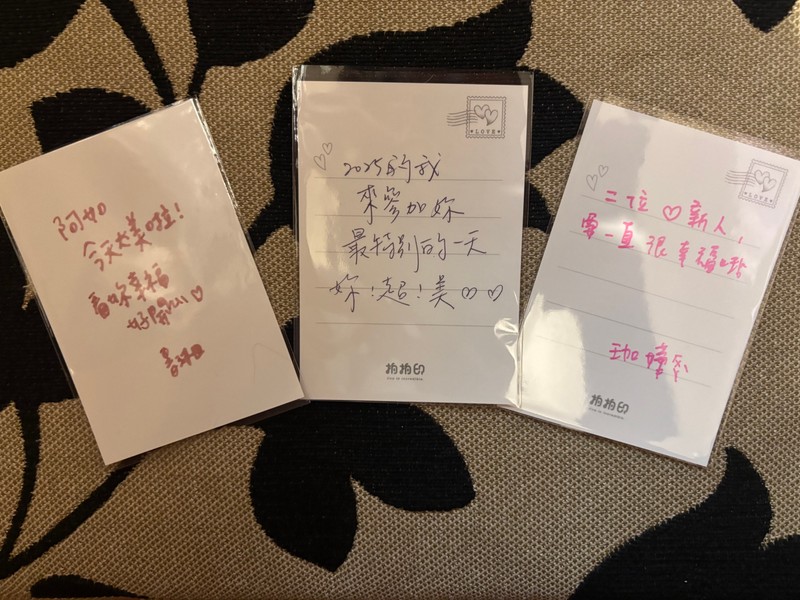 阿
今天太美啦！
看妳幸福
好開心♡
LOVE
2025的我
來參加妳
最特別的一天
妳！超！美♡♡
拍拍印
LOVE
二位♡新人，
要一直很幸福哦
拍拍印